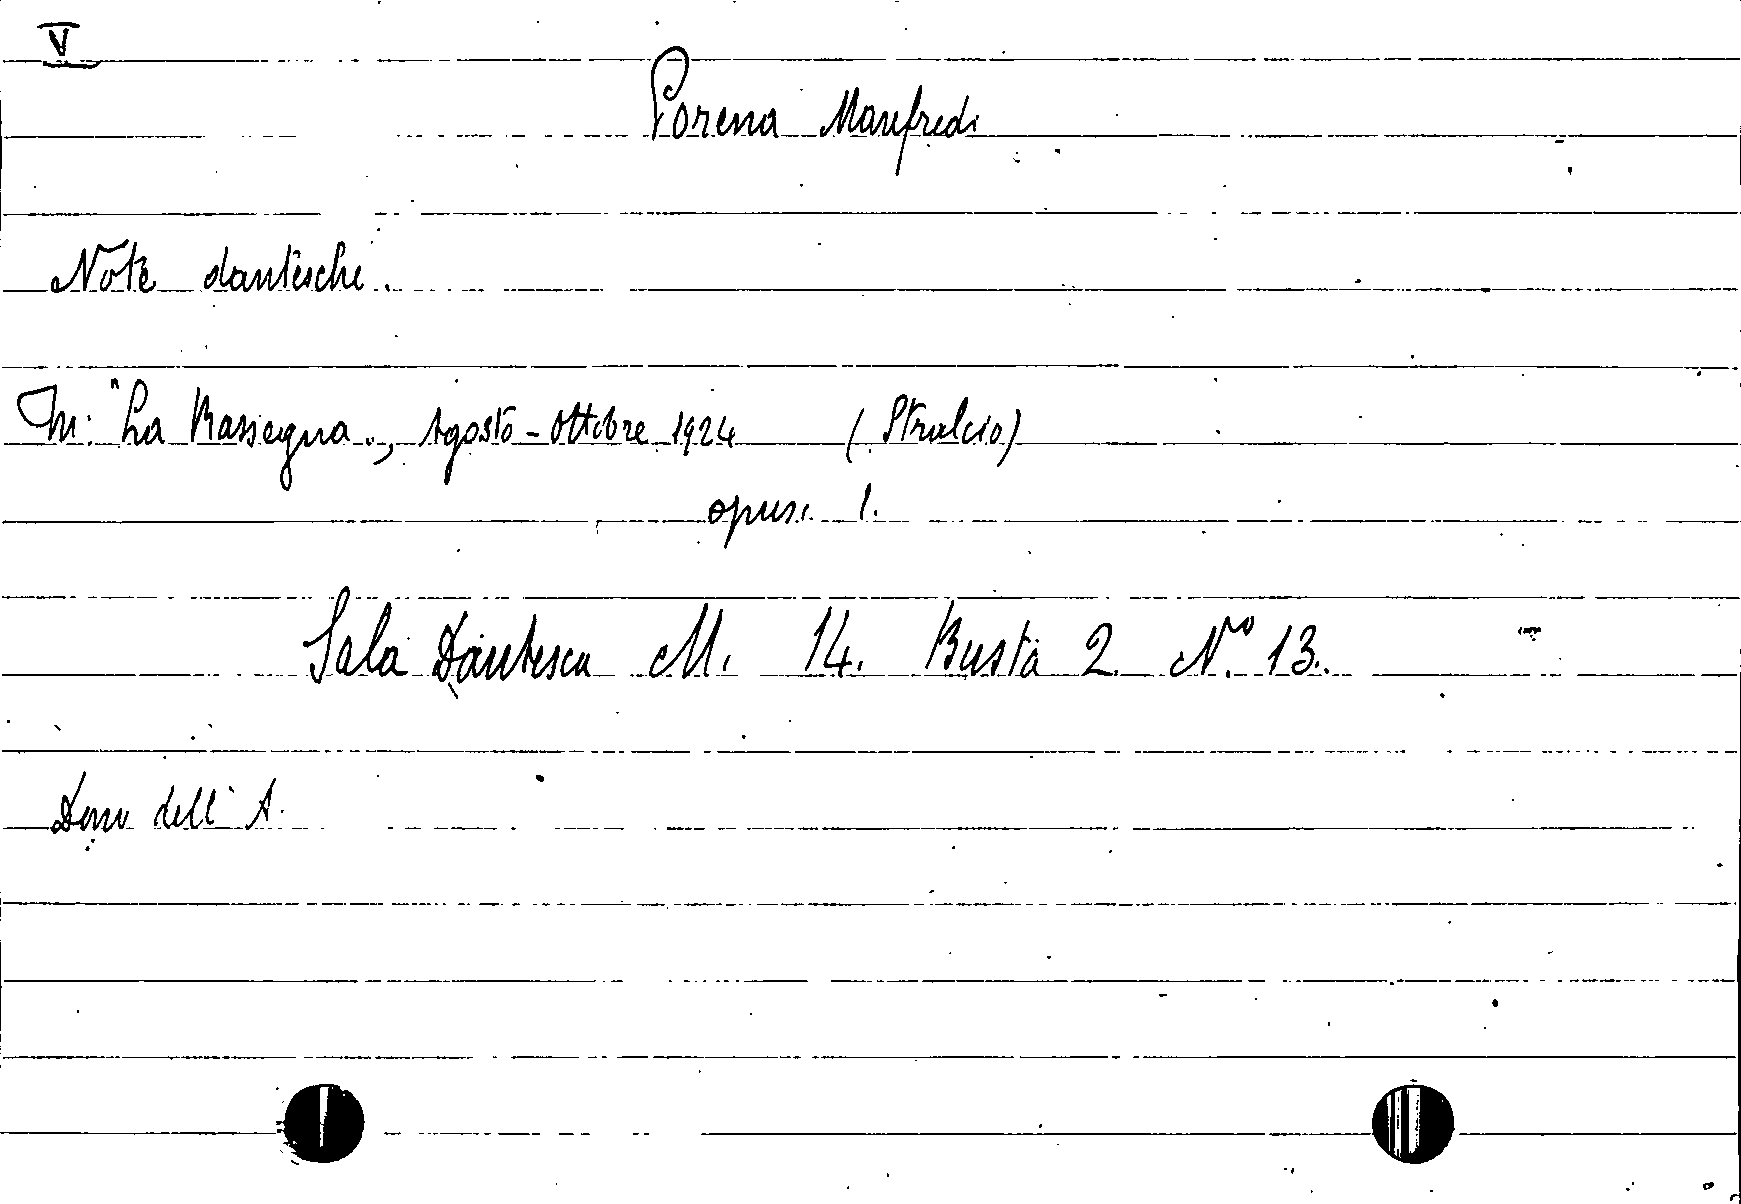 V
Porena Manfredi
Note dantesche.
In: "La Rassegna", Agosto-Ottobre 1924 (Stralcio)
opusc. 1.
Sala Dantesca M. 14. Busta 2. N.ro 13.
Dono dell'A.